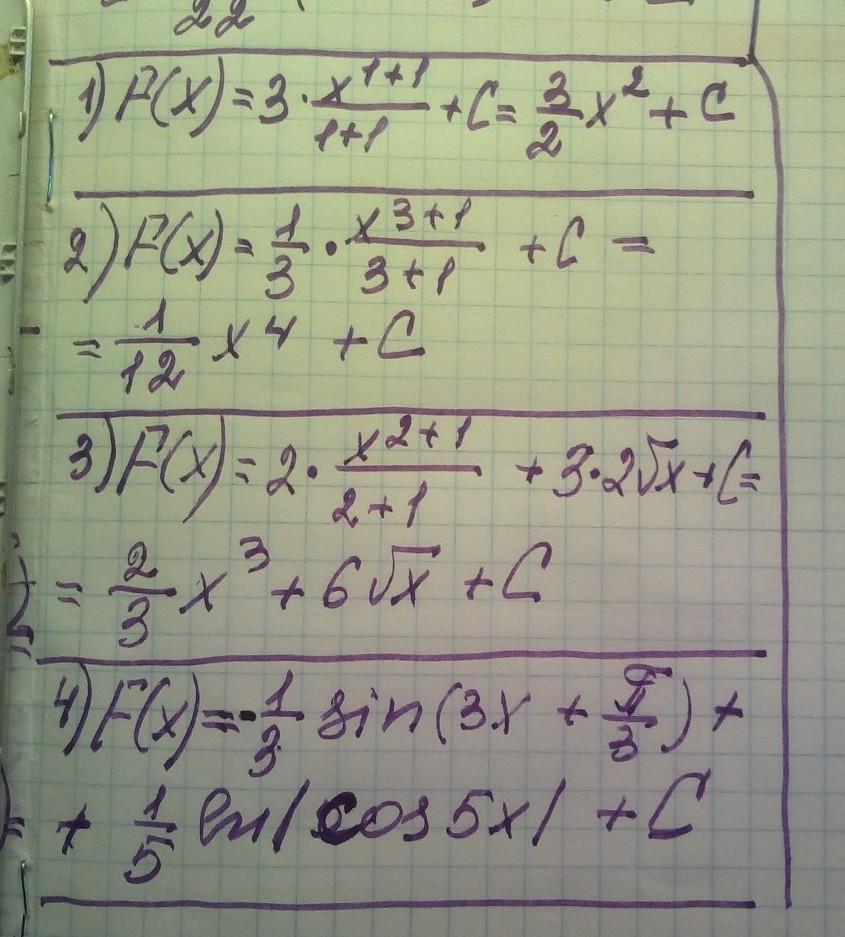 22
1) F(x) = 3 · x^(1+1)/(1+1) + C = 3/2 x² + C
2) F(x) = 1/3 · x^(3+1)/(3+1) + C =
= 1/12 x⁴ + C
3) F(x) = 2 · x^(2+1)/(2+1) + 3·2√x + C =
= 2/3 x³ + 6√x + C
4) F(x) = -1/3 sin(3x + π/3) +
+ 1/5 ln|cos 5x| + C